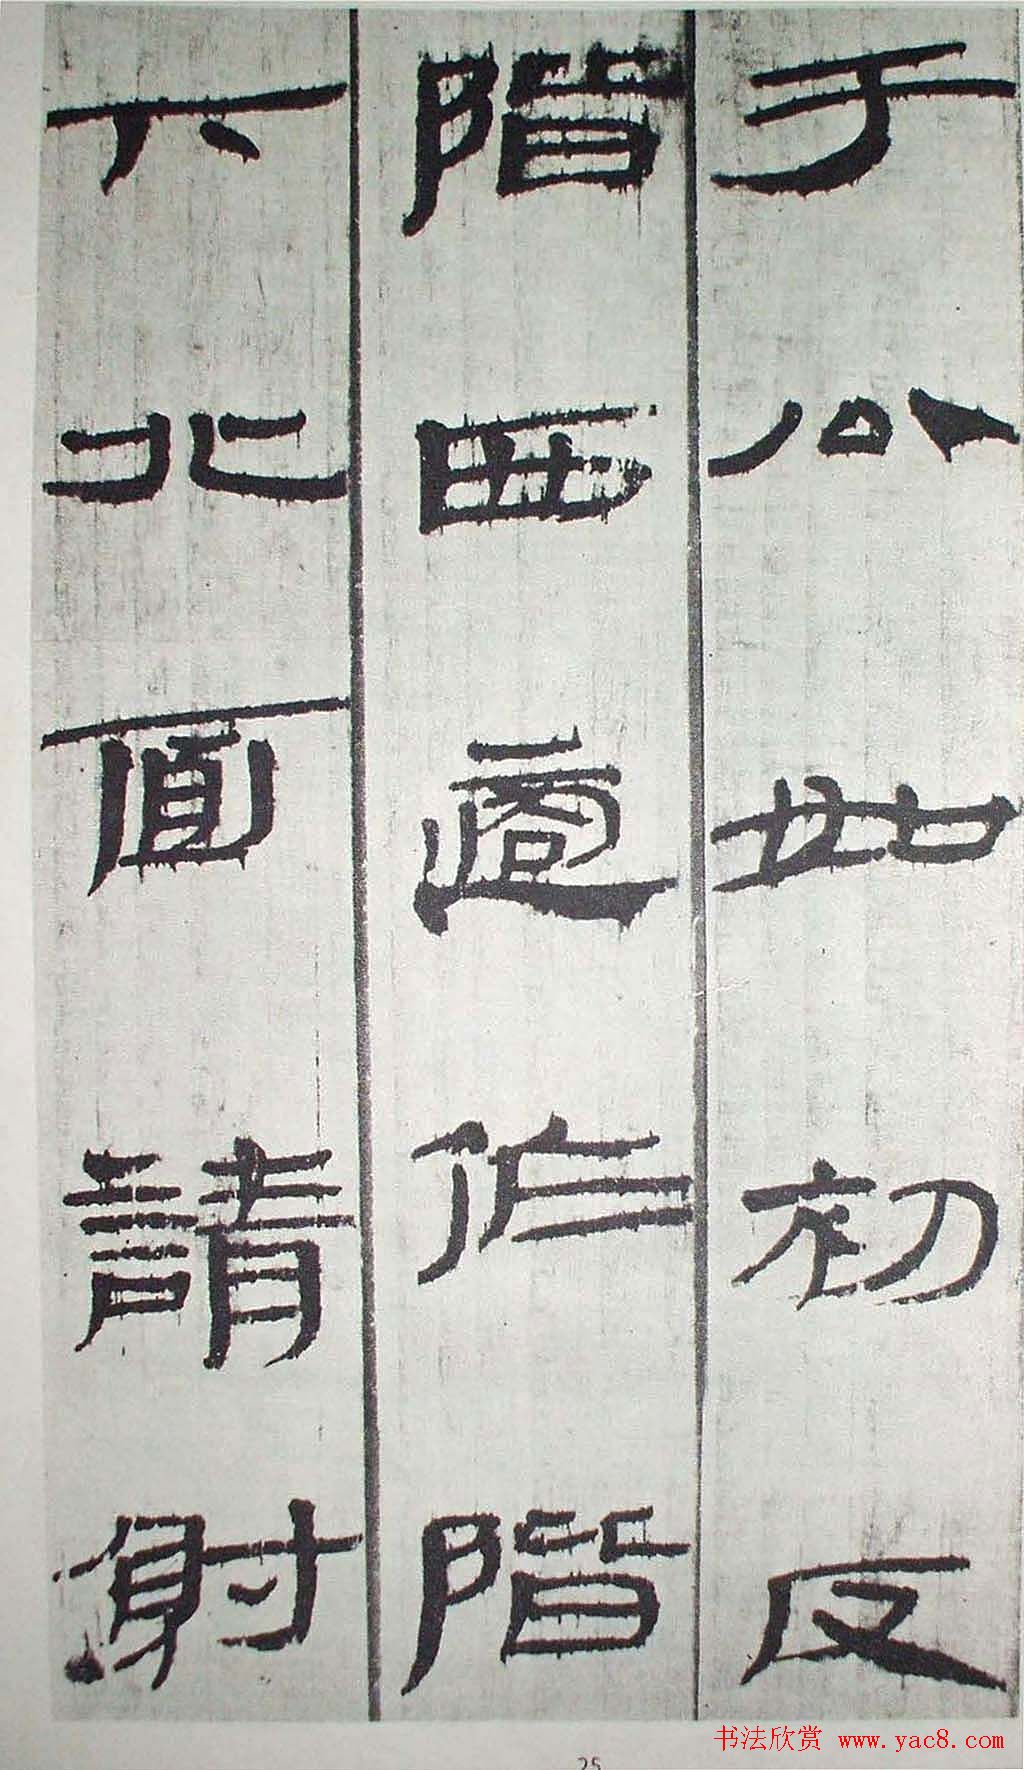 于公如初反
階西適作階
下北面請射
书法欣赏 www.yac8.com
25